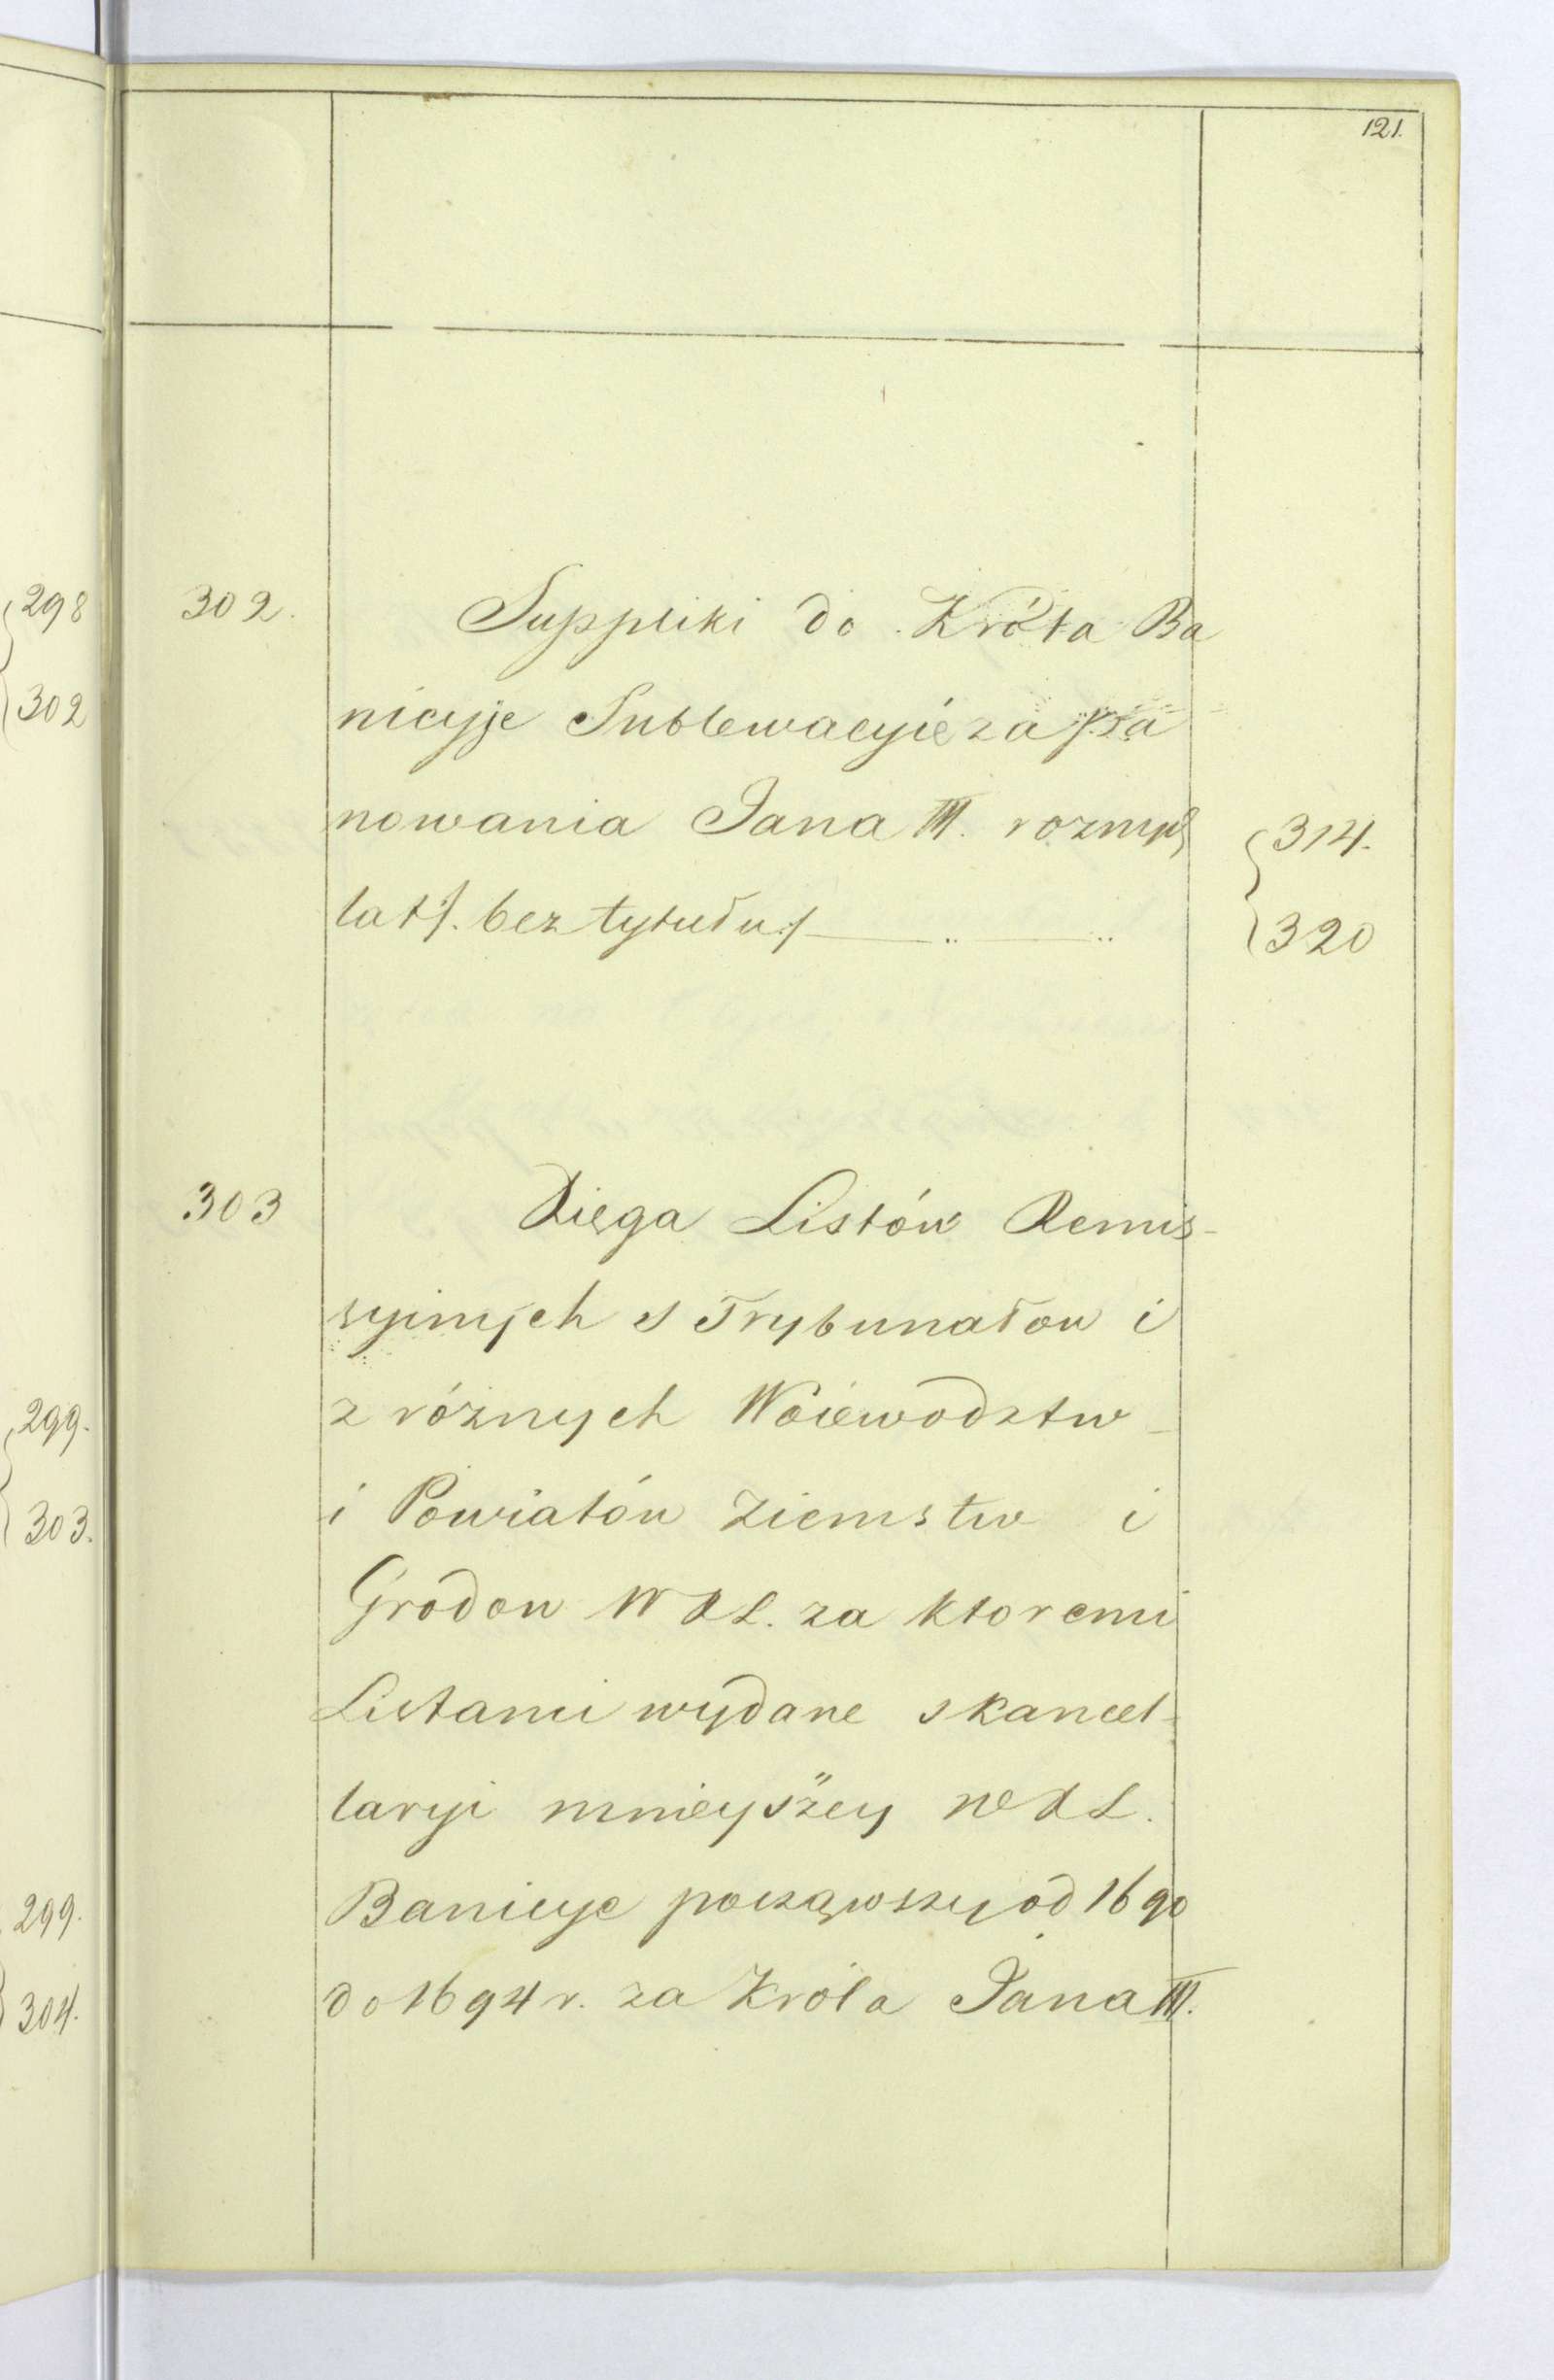 121.
298
302
299.
303.
299.
304.
302.
Suppliki do Króla Ba
nicyje Sublewacyie za pa
nowania Jana III. roznych
lat /. bez tytułu ./
314.
320
303
Xięga Listów Remis-
syinych s Trybunałow i
z róznych Woiewodztw
i Powiatów Ziemstw i
Grodow W X L. za ktoremi
Listami wydane s Kancel-
laryi mnieyszey W X L.
Banicye począwszy od 1690
do 1694 r. za Króla Jana III.